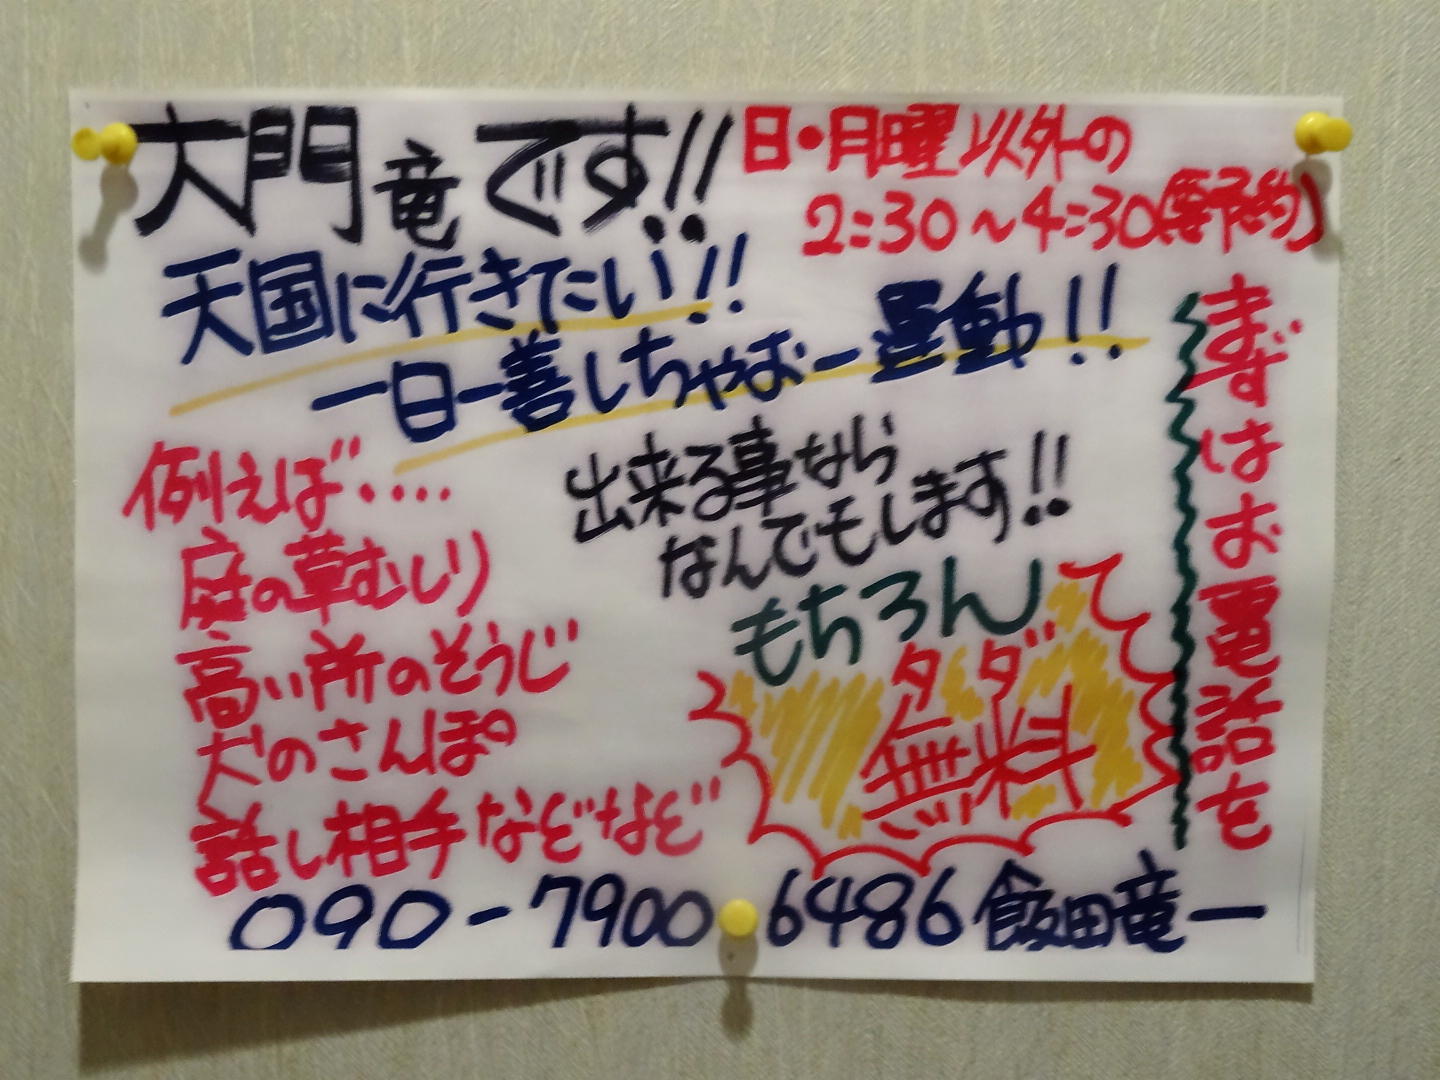 大門竜です!!
日・月曜以外の
2:30〜4:30(要予約)
天国に行きたい!!
一日一善しちゃおー運動!!
まずはお電話を
例えば・・・・
庭の草むしり
高い所のそうじ
犬のさんぽ
話し相手などなど
出来る事なら
なんでもします!!
もちろん
タダ
無料
090-7900 6486 飯田竜一